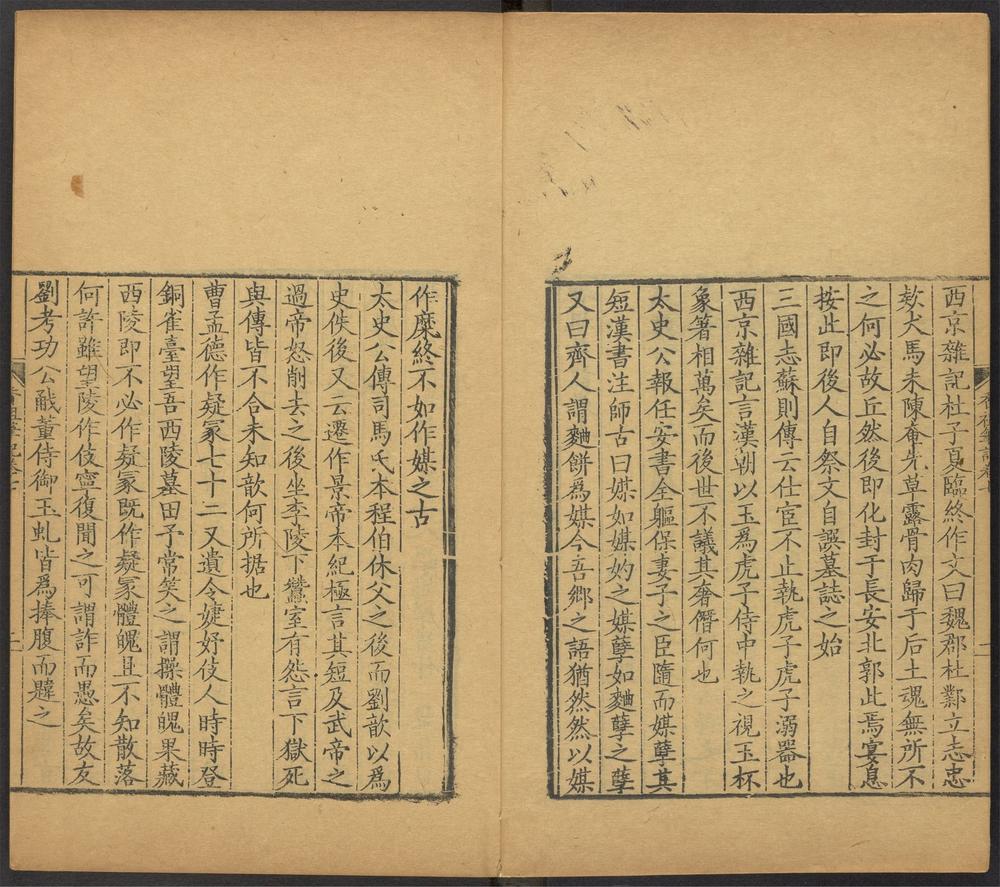 西京雜記杜子夏臨終作文曰魏郡杜鄴立志忠
欵犬馬未陳奄先草露骨肉歸于后土魂無所不
之何必故丘然後即化封于長安北郭此焉宴息
按此即後人自祭文自譔墓誌之始
三國志蘇則傳云仕宦不止執虎子虎子溺器也
西京雜記言漢朝以玉爲虎子侍中執之視玉杯
象箸相萬矣而後世不議其奢僭何也
太史公報任安書全軀保妻子之臣隨而媒孽其
短漢書注師古曰媒如媒妁之媒孽如麯孽之孽
又曰齊人謂麯餅爲媒今吾鄉之語猶然然以媒
作魔終不如作媒之古
太史公傳司馬氏本程伯休父之後而劉歆以爲
史佚後又云遷作景帝本紀極言其短及武帝之
過帝怒削去之後坐李陵下蠶室有怨言下獄死
與傳皆不合未知歆何所据也
曹孟德作疑冢七十二又遺令婕妤伎人時時登
銅雀臺望吾西陵墓田予常笑之謂操體魄果藏
西陵即不必作疑冢既作疑冢體魄且不知散落
何許雖望陵作伎寧復聞之可謂詐而愚矣故友
劉考功公㦷董侍御玉虬皆爲捧腹而韙之